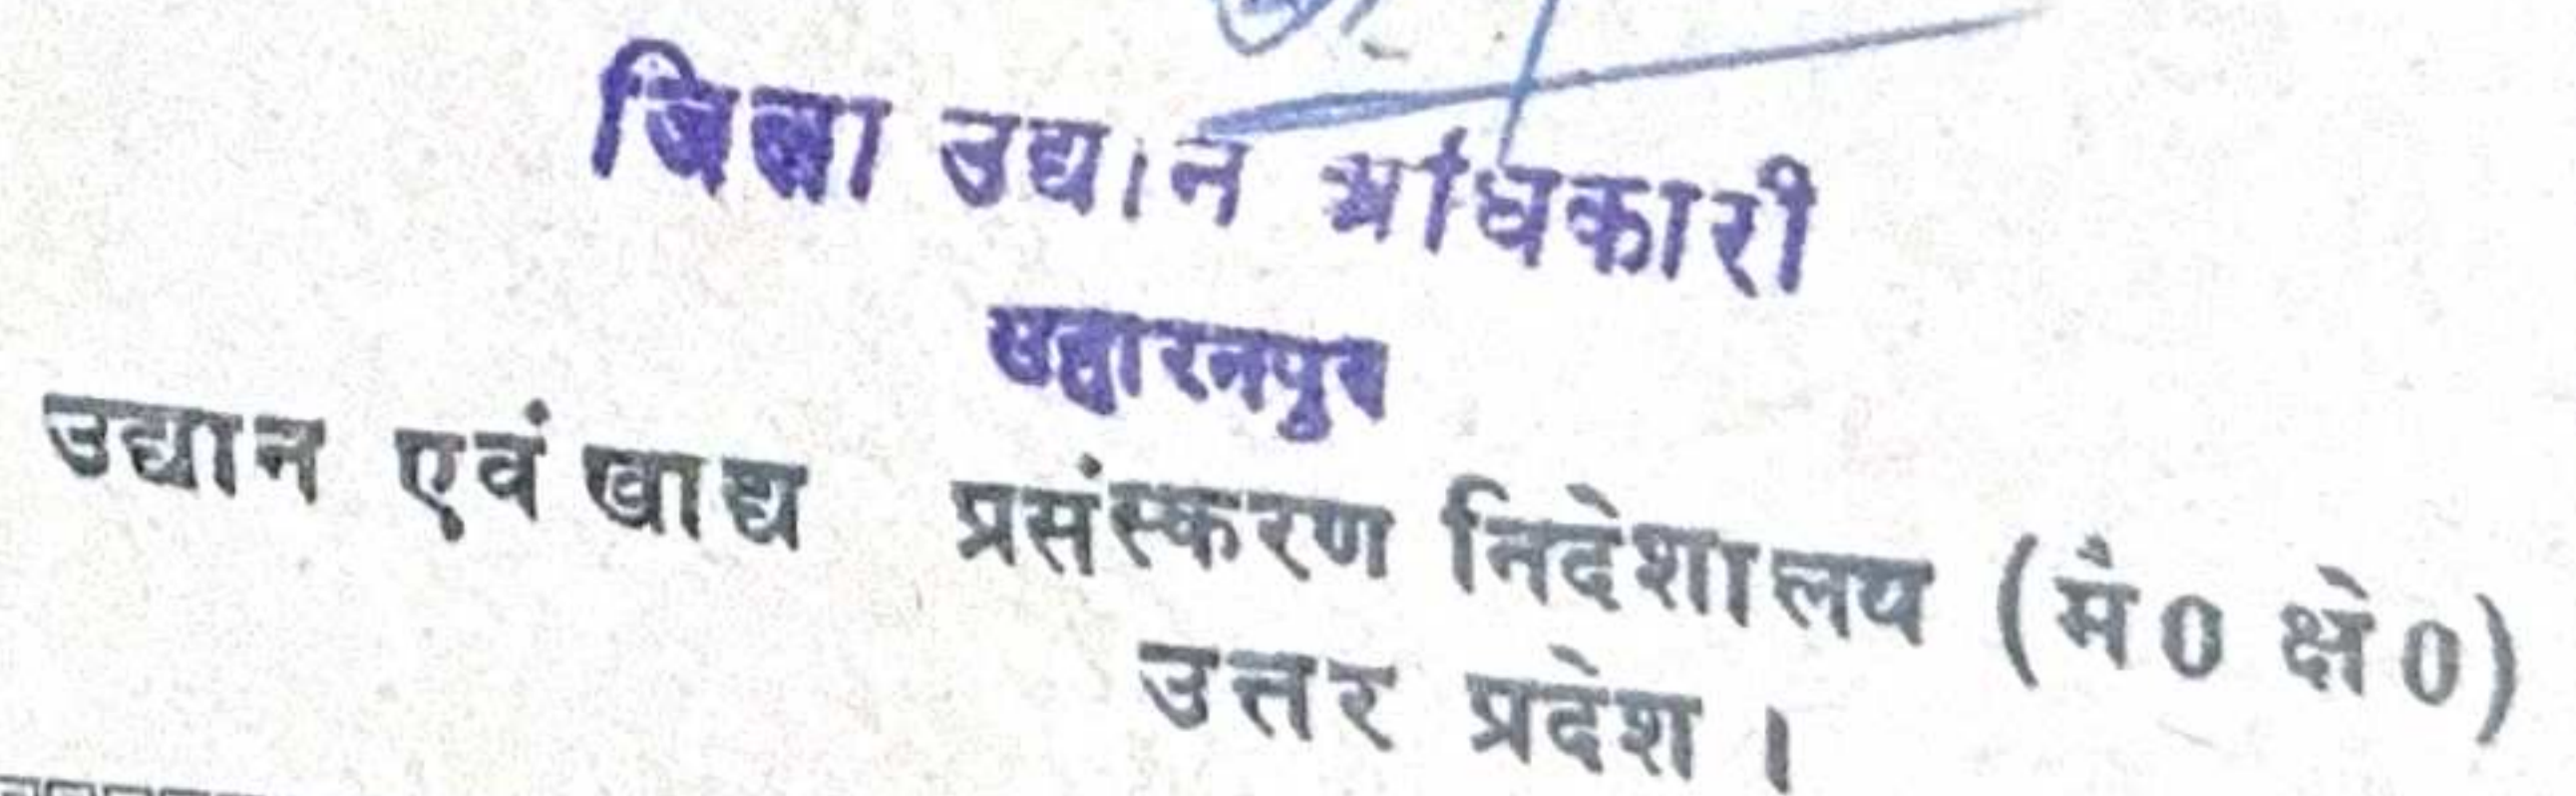 जिला उद्यान अधिकारी
सहारनपुर
उद्यान एवं खाद्य प्रसंस्करण निदेशालय (मै0 क्षे0)
उत्तर प्रदेश ।